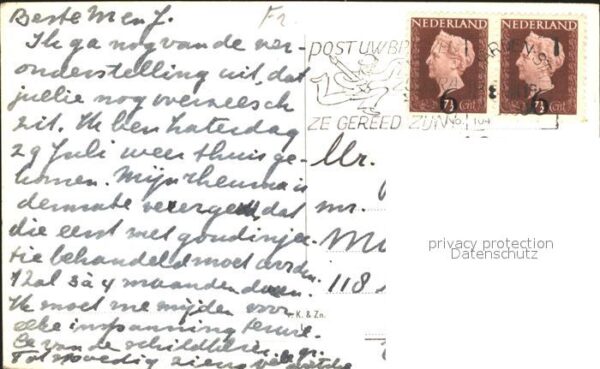 Beste M en J.
F2
Ik ga nog van de ver-
onderstelling uit, dat
jullie nog overzeesch
zit. Ik ben Zaterdag
29 Juli weer thuis ge-
komen. Mijn rheuma is
dermate verergerd, dat
die eerst met goudinjec-
tie behandeld moet worden.
't Zal 3 à 4 maanden duren.
Ik moet me mijden voor
elke inspanning
de schilderen
Tot spoedig ziens
NEDERLAND
NEDERLAND
7½ cnt
7½ cnt
POST UW
ZE GEREED ZIJN
Mr.
mr.
118
K. & Zn.
privacy protection
Datenschutz